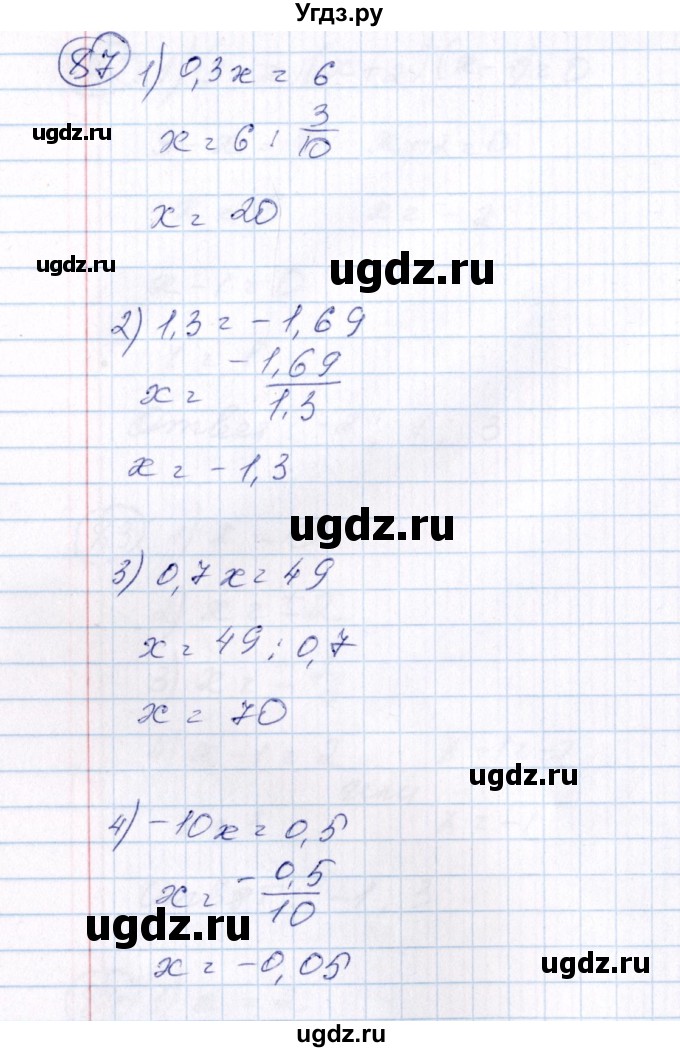 Угдз.ру
87 1) 0,3x = 6
ugdz.ru
x = 6 : 3/10
x = 20
ugdz.ru
ugdz.ru
2) 1,3 = -1,69
x = -1,69/1,3
x = -1,3
ugdz.ru
3) 0,7x = 49
x = 49 : 0,7
x = 70
ugdz.ru
4) -10x = 0,5
x = -0,5/10
ugdz.ru
x = -0,05
ugdz.ru
ugdz.ru